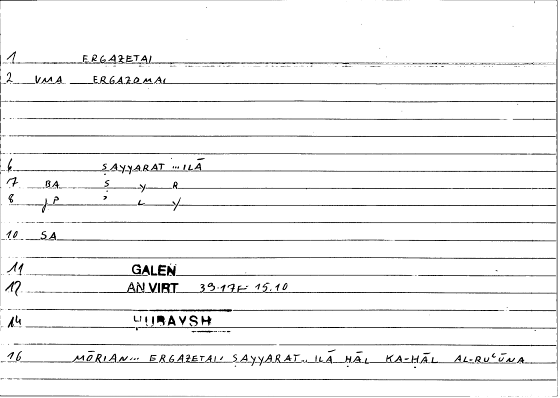 1 ERGAZETAI
2 VMA ERGAZOMAI
6 ṢAYYARAT ... ILĀ
7 BA Ṣ Y R
8 JP ʾ L Y
10 SA
11 GALEN
12 AN VIRT 39.17F 15.10
14 ḤUBAYSH
16 MŌRIAN... ERGAZETAI: ṢAYYARAT... ILĀ ḤĀL KA-ḤĀL AL-RUʿŪNA